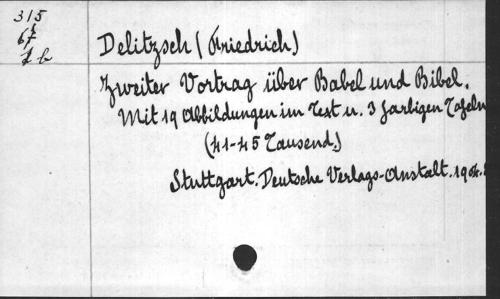 315
67
1 b
Delitzsch (Friedrich)
Zweiter Vortrag über Babel und Bibel.
Mit 19 Abbildungen im Text u. 3 farbigen Tafeln
(41-45 Tausend.)
Stuttgart. Deutsche Verlags-Anstalt. 1904.